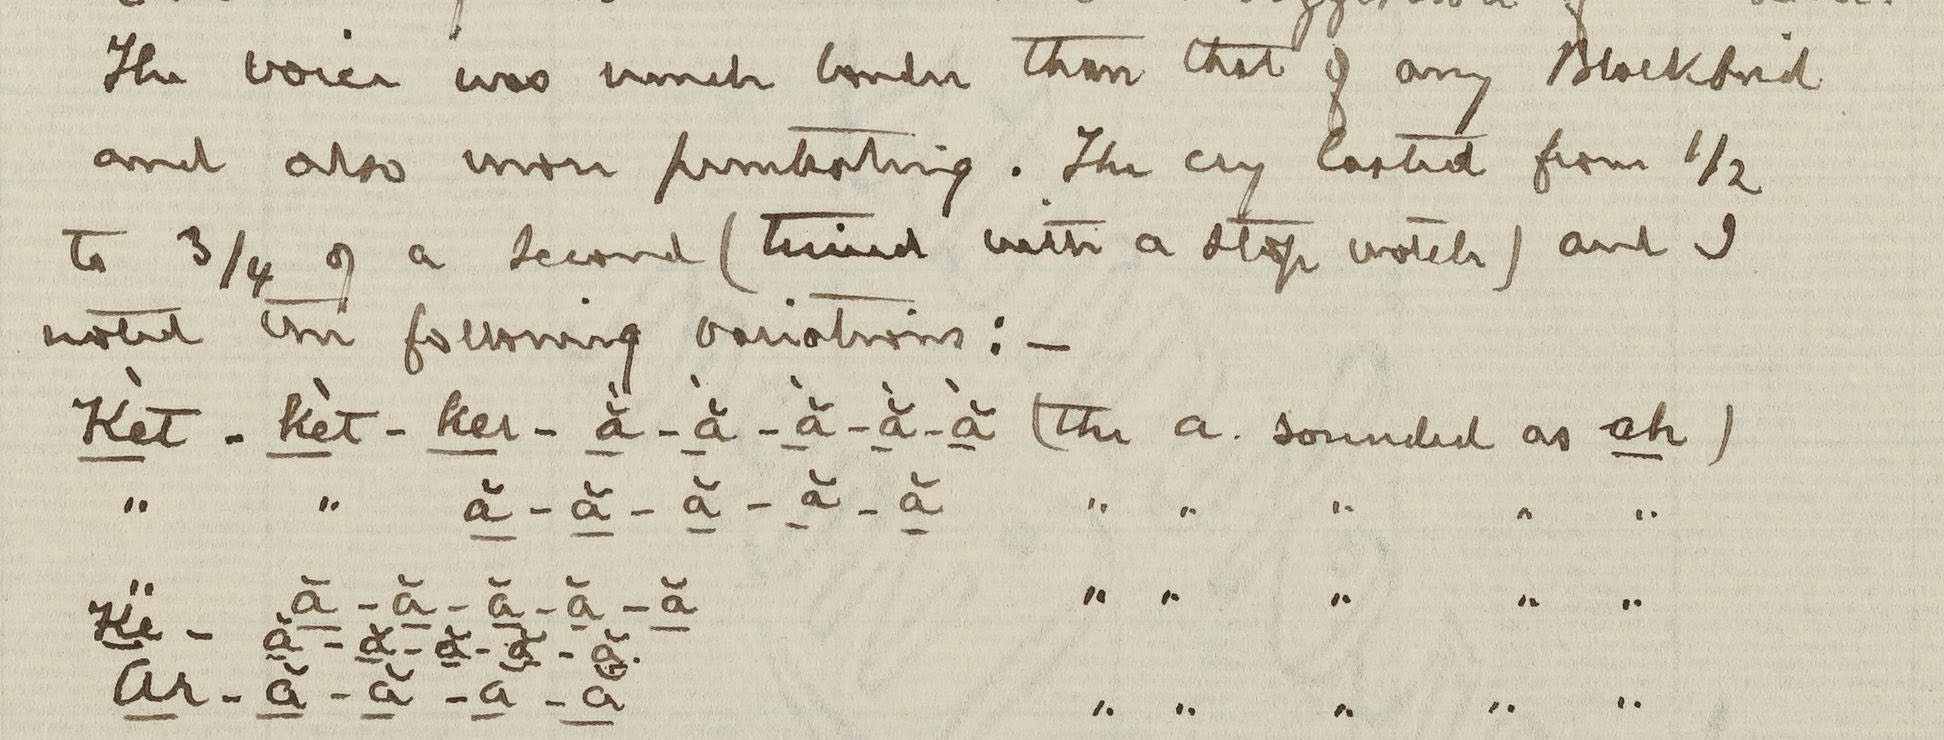 The voice was much louder than that of any Blackbird
and also more penetrating. The cry lasted from 1/2
to 3/4 of a second (timed with a stop watch) and I
noted the following variations:—
Kèt - kèt - ker - ằ - ằ - ằ - ằ - ằ (the a. sounded as ah)
" " ă - ă - ă - ă - ă " " " " "
ă - ă - ă - ă - ă " " " " "
Kë - ă - ă - ă - ă - ă.
Ar - ă - ă - ă - ă " " " " "